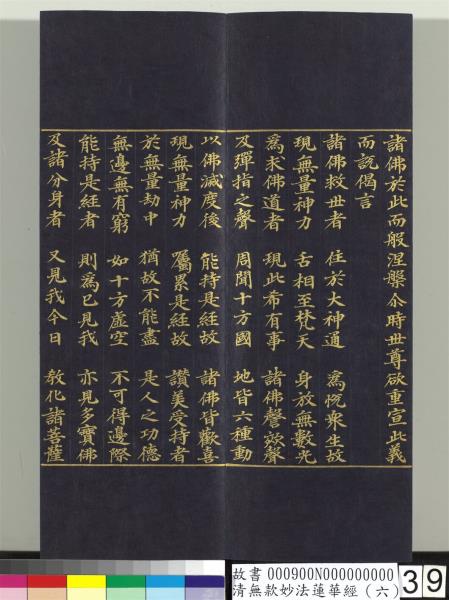 諸佛於此而般涅槃尒時世尊欲重宣此義
而說偈言
諸佛救世者　住於大神通　為悅衆生故
現無量神力　舌相至梵天　身放無數光
為求佛道者　現此希有事　諸佛謦欬聲
及彈指之聲　周聞十方國　地皆六種動
以佛滅度後　能持是經故　諸佛皆歡喜
現無量神力　屬累是經故　讚美受持者
於無量劫中　猶故不能盡　是人之功德
無邊無有窮　如十方虛空　不可得邊際
能持是經者　則為已見我　亦見多寶佛
及諸分身者　又見我今日　教化諸菩薩
故書 000900N000000000
清無款妙法蓮華經（六）
39